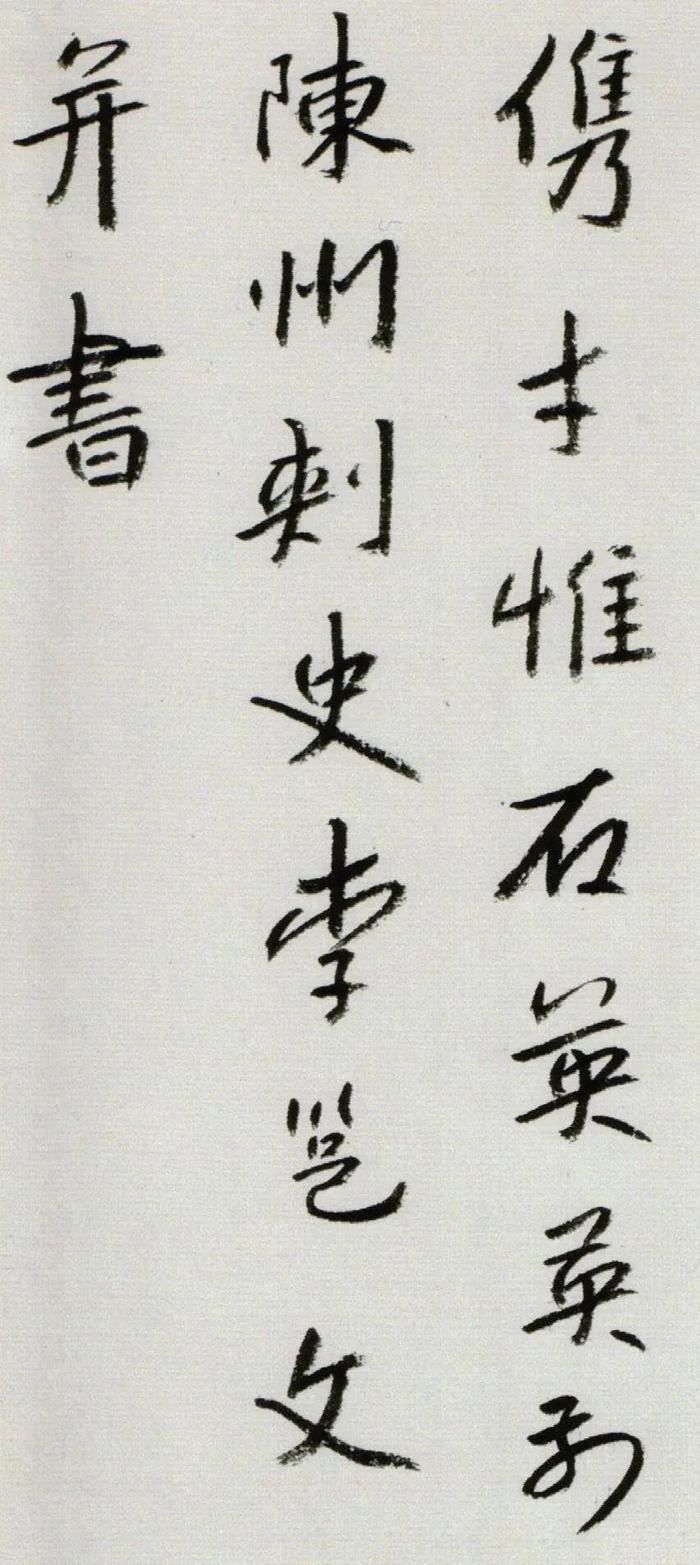 㑺才惟石英英别
陳州刺史李邕文
并書